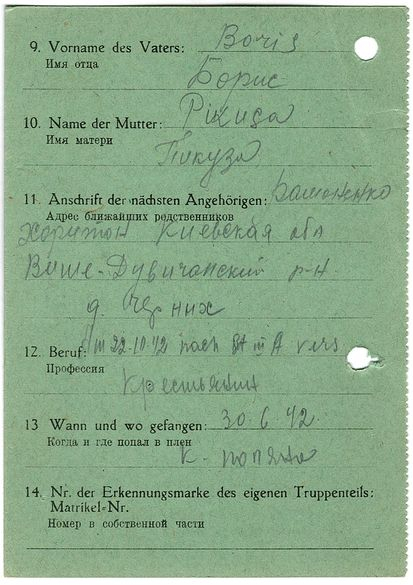 9. Vorname des Vaters: Boris
Имя отца
Борис
10. Name der Mutter:
Имя матери
Пикуза
11. Anschrift der nächsten Angehörigen:
Адрес ближайших родственников
Харитон Киевская обл
р-н
д.
12. Beruf: 22.10.42 nach III A vers
Профессия
Крестьянин
13 Wann und wo gefangen: 30.6.42.
Когда и где попал в плен
14. Nr. der Erkennungsmarke des eigenen Truppenteils:
Matrikel-Nr.
Номер в собственной части